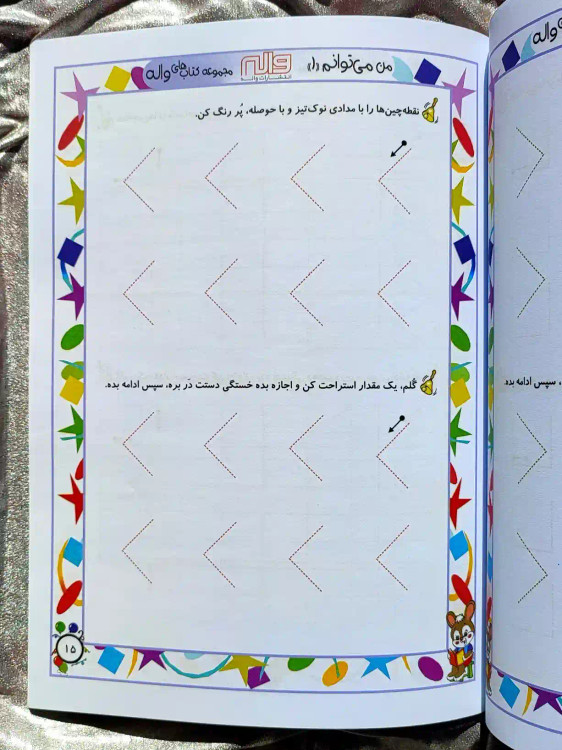 من می‌توانم «۱»
واله
انتشارات واله
مجموعه کتاب‌های واله
نقطه‌چین‌ها را با مدادی نوک‌تیز و با حوصله، پُر رنگ کن.
گلم، یک مقدار استراحت کن و اجازه بده خستگی دستت دَر بره، سپس ادامه بده.
۱۵
های واله
، سپس ادامه بده.